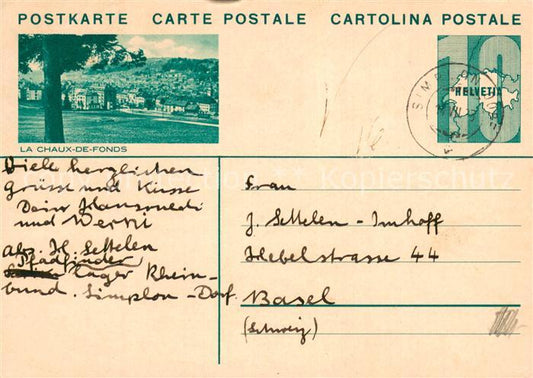 POSTKARTE CARTE POSTALE CARTOLINA POSTALE
10
HELVETIA
SIMPLON
LA CHAUX-DE-FONDS
Viele herzlichen
Grüsse und Küsse
Dein Hansruedi
und Werni
Abs. H. Settelen
Pfadfinder
lager Rhein-
bund. Simplon-Dorf.
Frau
J. Settelen-Imhoff
Hebelstrasse 44
Basel
(Schweiz)
Kopierschutz